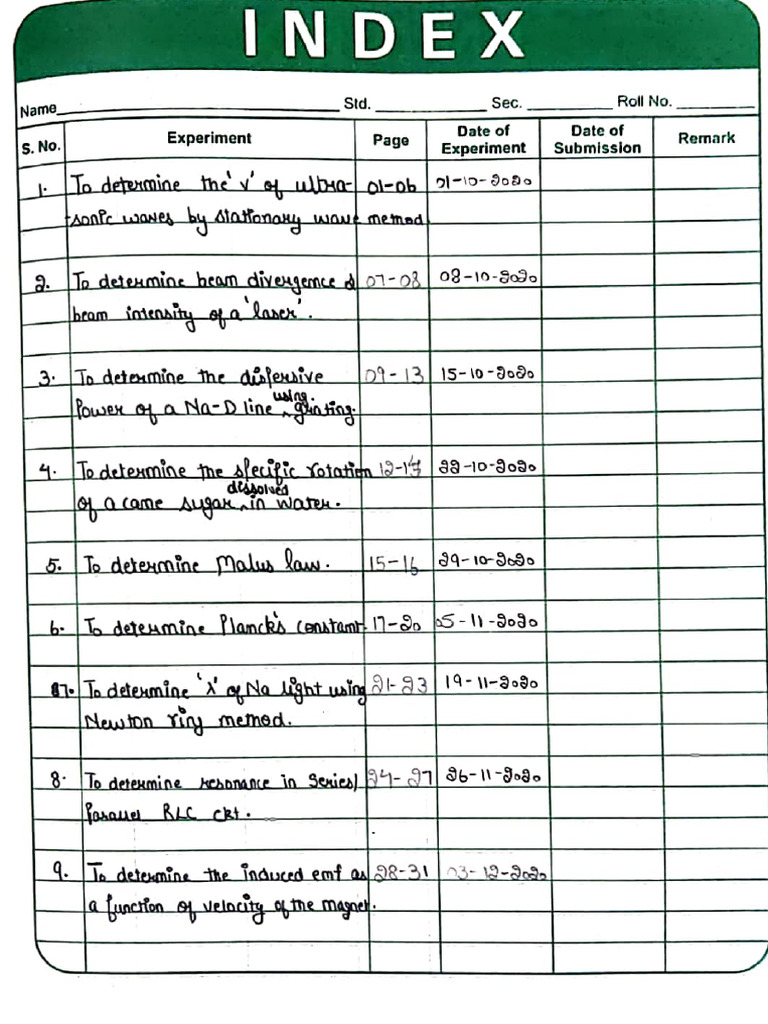 INDEX
Name Std. Sec. Roll No.
S. No. Experiment Page Date of Experiment Date of Submission Remark
1. To determine the 'v' of ultra- 01-06 01-10-2020
sonic waves by stationary wave method
2. To determine beam divergence & 07-08 08-10-2020
beam intensity of a 'laser'.
3. To determine the dispersive 09-13 15-10-2020
Power of a Na-D line using grating.
4. To determine the specific rotation 22-10-2020
of a cane sugar dissolved in water.
5. To determine Malus law. 15-16 29-10-2020
6. To determine Planck's constant 17-20 05-11-2020
7. To determine 'λ' of Na light using 21-23 19-11-2020
Newton ring method.
8. To determine resonance in series/ 24-27 26-11-2020
Parallel RLC ckt.
9. To determine the induced emf as 28-31 03-12-2020
a function of velocity of the magnet.